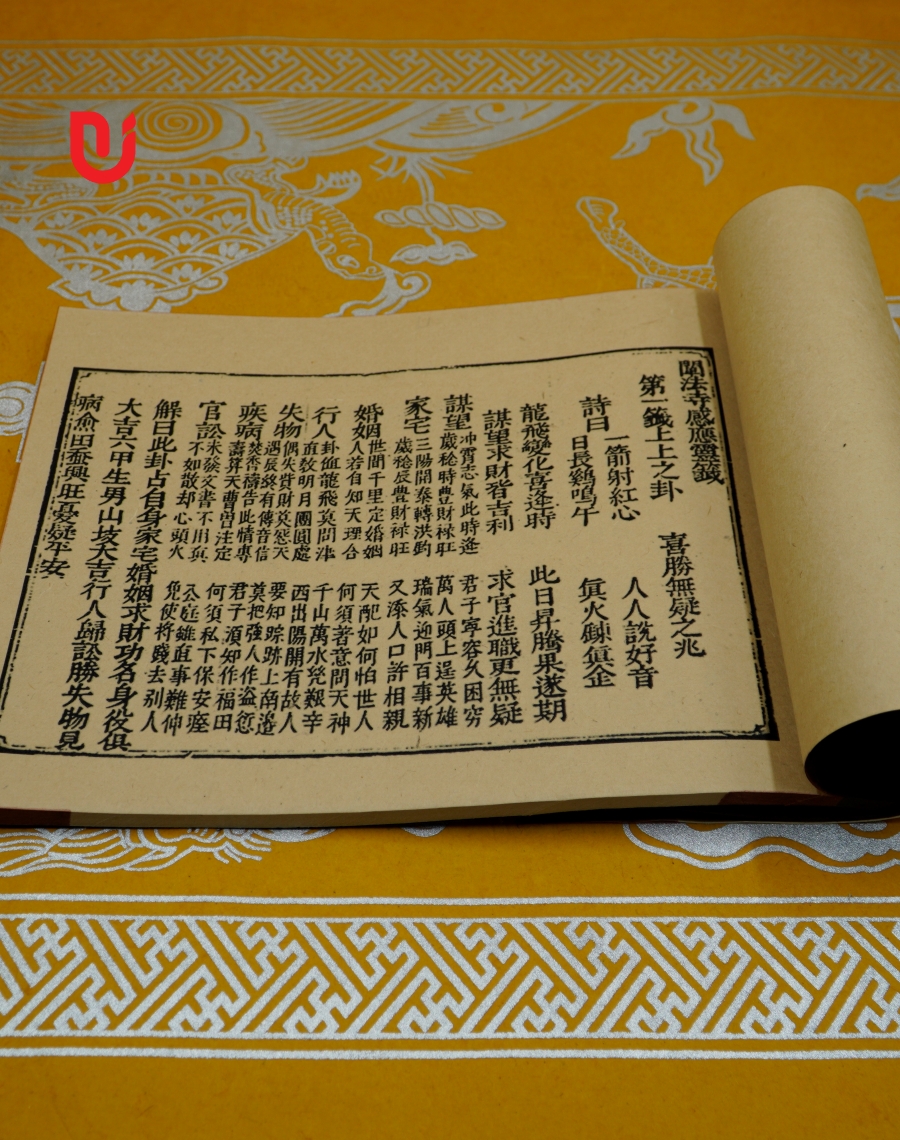 闡法寺感應靈籤
第一籤上上之卦 喜勝無疑之兆
詩曰 一箭射紅心 人人說好音
日長鷄鳴午 真火鍊真金
龍飛變化喜逢時 此日昇騰果遂期
謀望求財皆吉利 求官進職更無疑
謀望 冲霄志氣此時逢 君子寧容久困穷
歲稔時豊財禄旺 萬人頭上逞英雄
家宅 三陽開泰轉洪鈞 瑞氣迎門百事新
歲稔辰豊財禄旺 又添人口許相親
婚姻 世間千里定婚姻 天配如何怕世人
人若自知天理合 何須著意問天神
行人 卦値龍飛莫問津 千山萬水免艱辛
直教明月團圓處 西出陽関有故人
失物 偶失貲財莫怨天 要知踪跡上南邉
遇辰終有傳音信 莫把强人作盜愆
疾病 焚香禱告此情專 君子須知作福田
壽算天曹曽注定 何須私下保安痊
官訟 未發文書不用真 公庭雖直事難伸
不如散却心頭火 免使将錢去别人
解曰此卦占自身家宅婚姻求財功名身役俱
大吉六甲生男山坟大吉行人歸訟勝失物見
病愈田蚕興旺憂疑平安